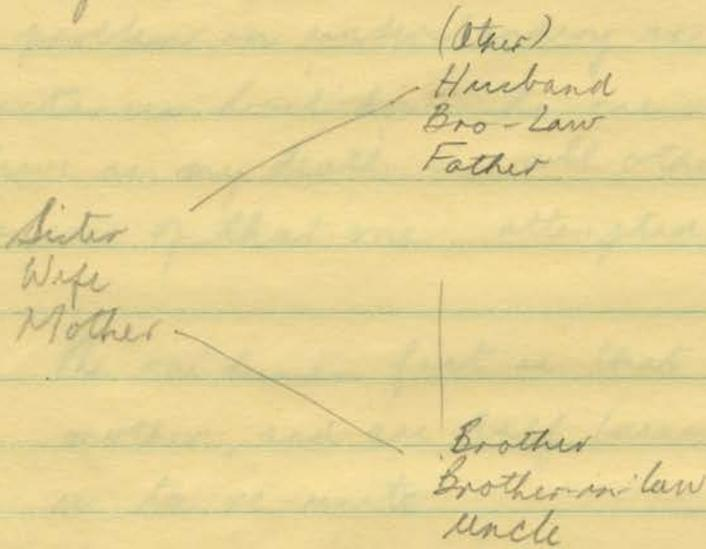 (Other)
Husband
Bro-Law
Father
Sister
Wife
Mother
Brother
Brother-in-law
Uncle